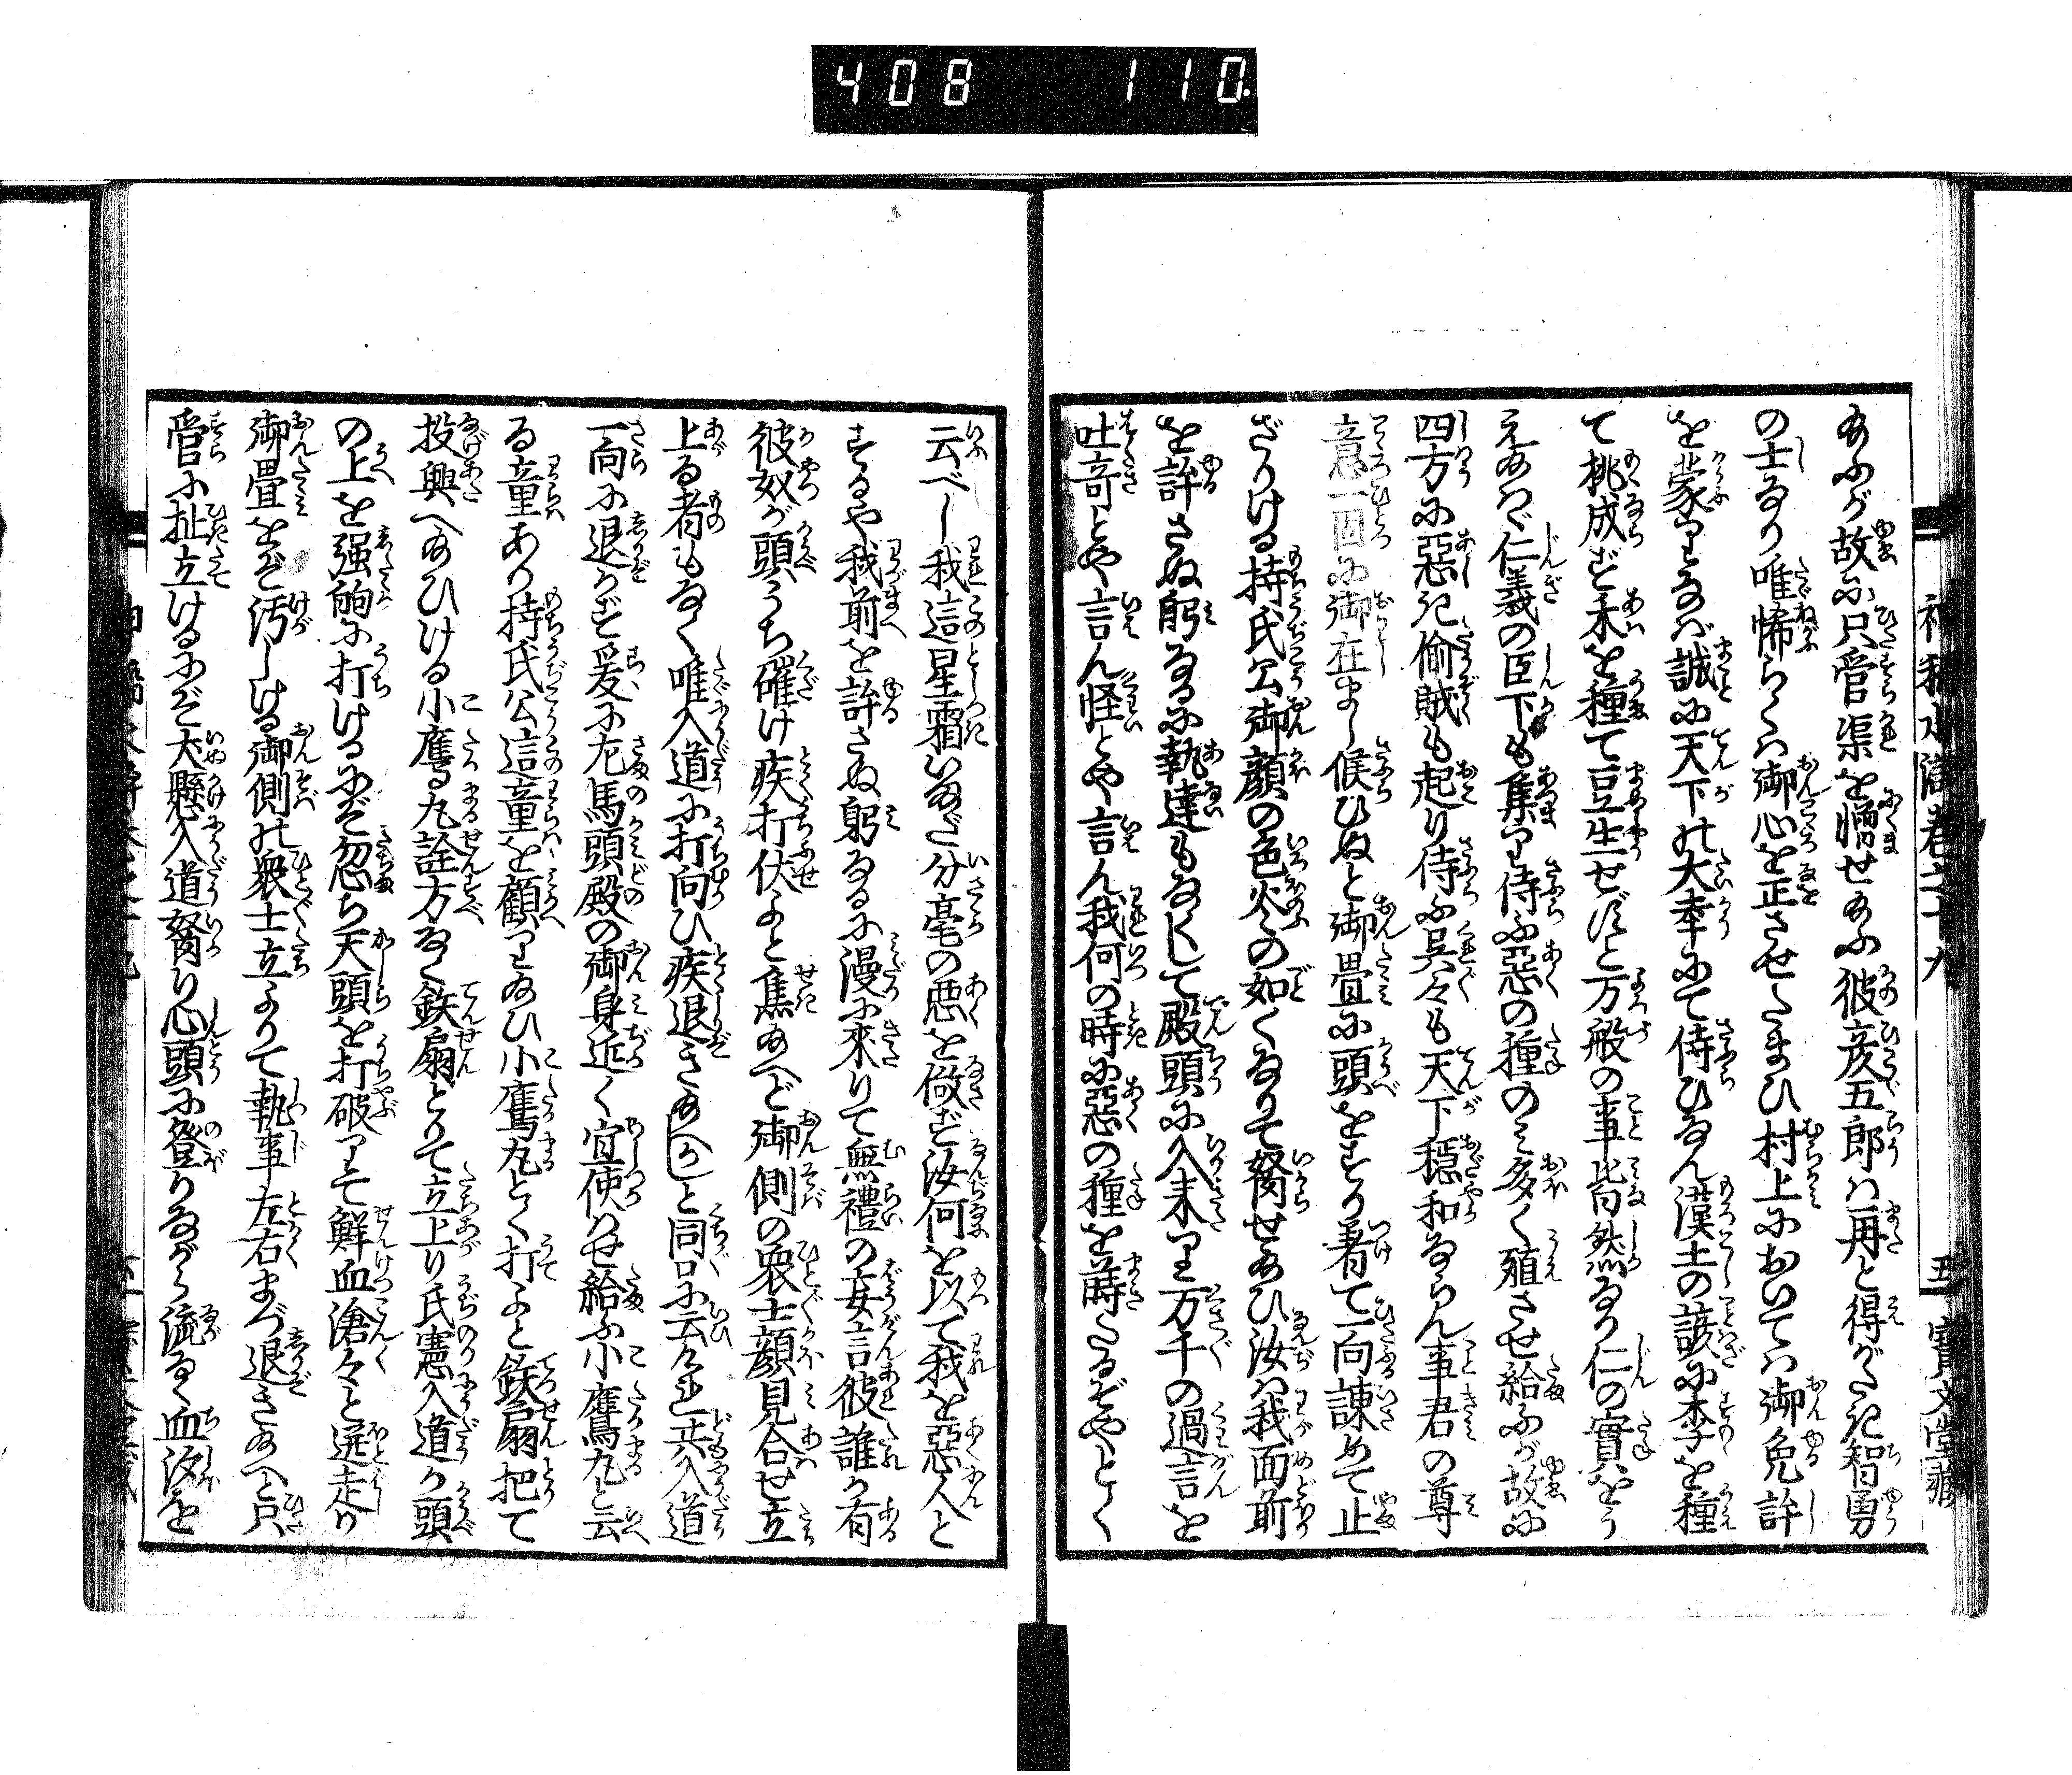 408 110
給ふが故に只管渠を憎せ給ふ彼彦五郎は再と得がたき智勇
の士なり唯悕らくは御心を正させたまひ村上においては御免許
を蒙りなば誠に天下の大幸にて侍ひなん漢土の諺に李を種
て桃成ず禾を種て豆生ぜずと万般の事皆然なり仁の實をう
えあらば仁義の臣下も集り侍ふ惡の種のみ多く殖させ給ふが故に
四方に惡き偷賊も起り侍ふ呉々も天下穩和ならん事君の尊
意一個に御在まし候ひぬと御畳に頭をすり着て一向諫めて止
ざりける持氏公御顔の色火の如くなりて努せ給ひ汝は我面前
を許さぬ躬なるに執達もなくして殿頭に入来り万千の過言を
吐奇とや言ん怪とや言ん我何の時に惡の種を蒔たるぞやとく
云べし我這星霜いまだ分毫の惡を做ず汝何を以て我を惡人と
するや我前を許さぬ躬なるに漫に來りて無禮の妄言彼誰か有
彼奴が頭うち碓け疾打伏よと焦給へど御側の衆士顔見合せ立
上る者もなく唯入道に打向ひ疾退き給へと同口に云けれ共入道
一向に退かず爰に左馬頭殿の御身近く宜使はせ給ふ小鷹丸と云
る童あり持氏公這童を顧り給ひ小鷹丸とく打よと鉄扇把て
投與へ給ひける小鷹丸詮方なく鉄扇とりて立上り氏憲入道か頭
の上を强胊に打けるにぞ忽ち天頭を打破りて鮮血滄々と迸走り
御畳をぞ汚しける御側の衆士立よりて執事左右まづ退き給へと只
管に扯立けるにぞ犬懸入道努り心頭に登りながら流るゝ血汐を